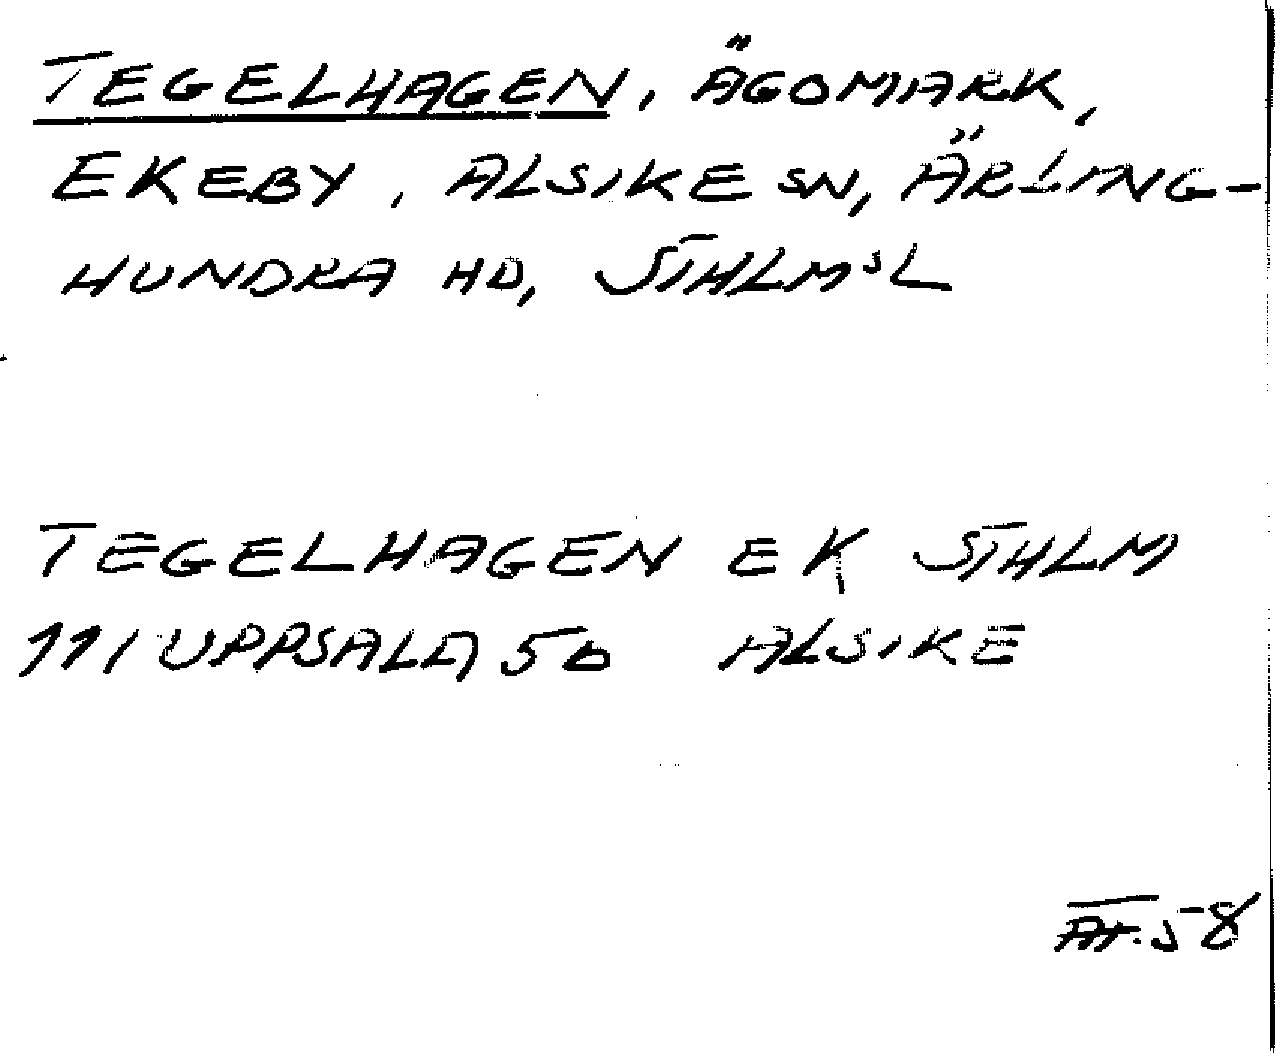 TEGELHAGEN, ÄGOMARK,
EKEBY, ALSIKE SN, ÄRLING-
HUNDRA HD, STHLMS L
TEGELHAGEN EK STHLM
111 UPPSALA 5b ALSIKE
58